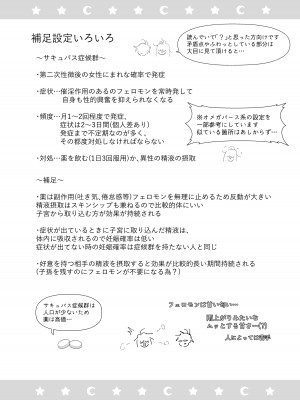 補足設定いろいろ
読んでいて「？」と思った方向けです
矛盾点やふわっとしている部分は
大目に見て頂けると…
～サキュバス症候群～
・第二次性徴後の女性にまれな確率で発症
・症状…催淫作用のあるフェロモンを常時発して
自身も性的興奮を抑えられなくなる
※オメガバース系の設定を
一部参考にしています
似ている箇所はあしからず…
・頻度…月1～2回程度で発症、
症状は2～3日間(個人差あり)
発症まで不定期なのが多く、
その都度対処しなければならない
・対処…薬を飲む(1日3回服用)か、異性の精液の摂取
～補足～
・薬は副作用(吐き気、倦怠感等)フェロモンを無理に止めるため反動が大きい
精液摂取はスキンシップも兼ねるので比較的体にいい
子宮から取り込む方が効果が持続される
・症状が出ているときに子宮に取り込んだ精液は、
体内に吸収されるので妊娠確率は低い
症状が出てない時の妊娠確率は症候群を持たない人と同じ
・好意を持つ相手の精液を摂取すると効果が比較的長い期間持続される
(子孫を残すのにフェロモンが不要になる為？)
サキュバス症候群は
人口が少ないため
薬は高価…
フェロモンは甘い匂い…
雨上がりみたいな
ムッとする甘さ…(?)
人によっては苦手